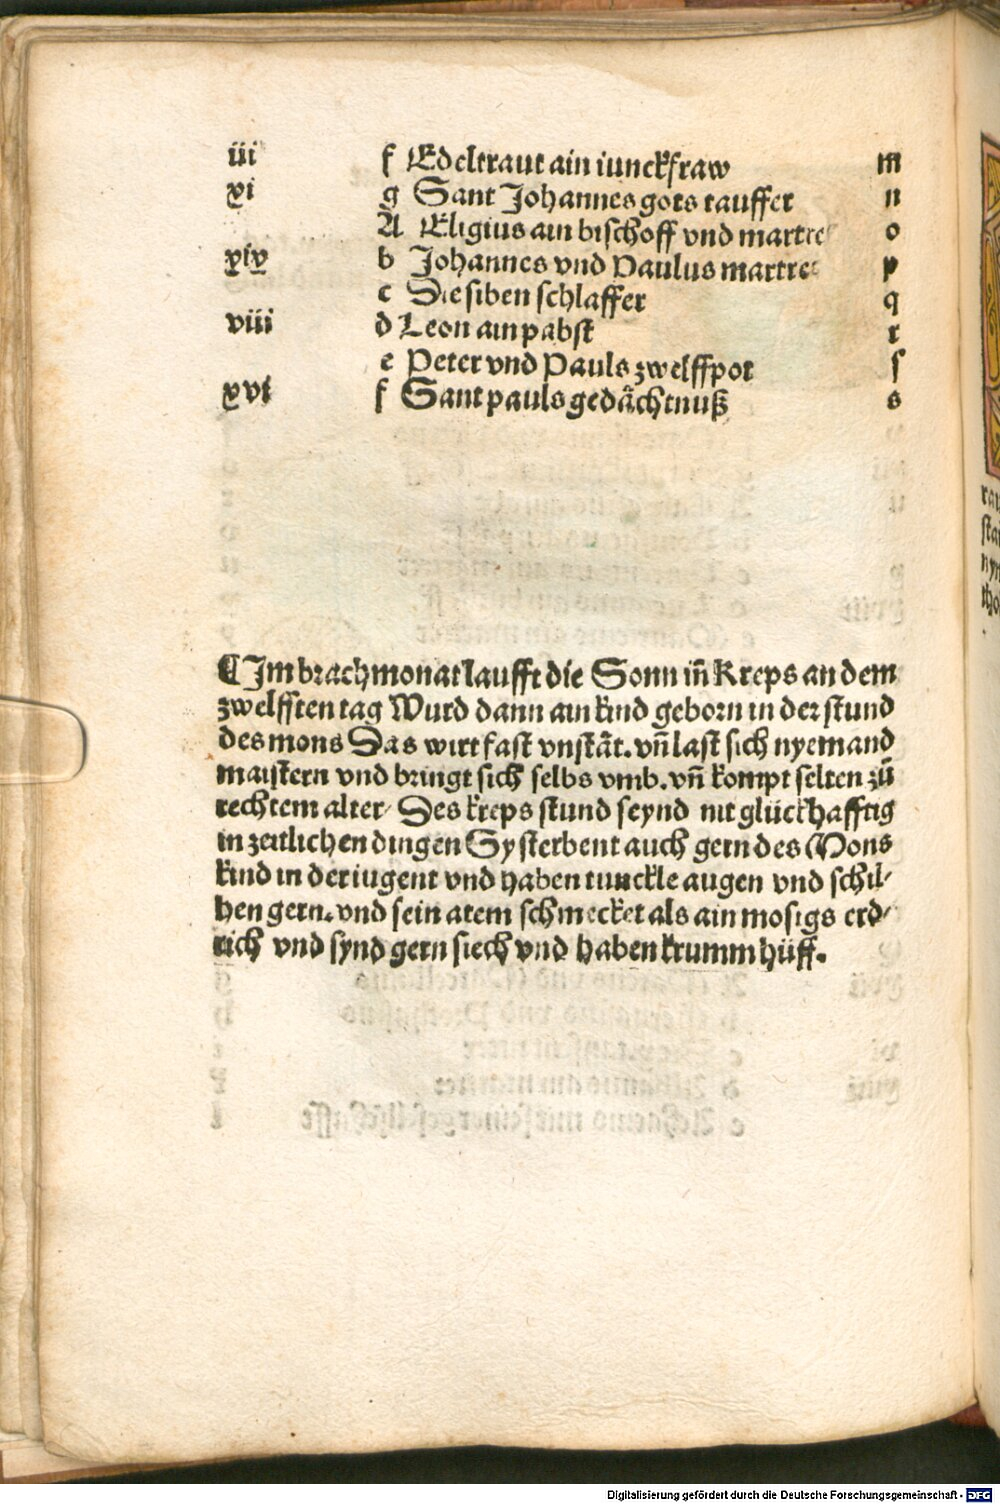 iii f Edeltraut ain iunckfraw m
xi g Sant Johannes gots tauffer n
A Eligius ain bischoff vnd martrer o
xix b Johannes vnd Paulus martrer p
c Die siben schlaffer q
viii d Leon ain pabst r
e Peter vnd Pauls zwelffpot ſ
xvi f Sant pauls gedächtnuß s
¶ Im brachmonat laufft die Sonn iñ Kreps an dem
zwelfften tag Wurd dann ain kind geborn in der stund
des mons Das wirt fast vnstät. vñ last sich nyemand
maistern vnd bringt sich selbs vmb. vñ kompt selten zů
rechtem alter/ Des kreps stund seynd nit glückhafftig
in zeitlichen dingen Sy sterbent auch gern des Mons
kind in der iugent vnd haben tunckle augen vnd schil/
hen gern. vnd sein atem schmecket als ain mosigs erd/
rich vnd synd gern siech vnd haben krumm hüff.
Digitalisierung gefördert durch die Deutsche Forschungsgemeinschaft - DFG